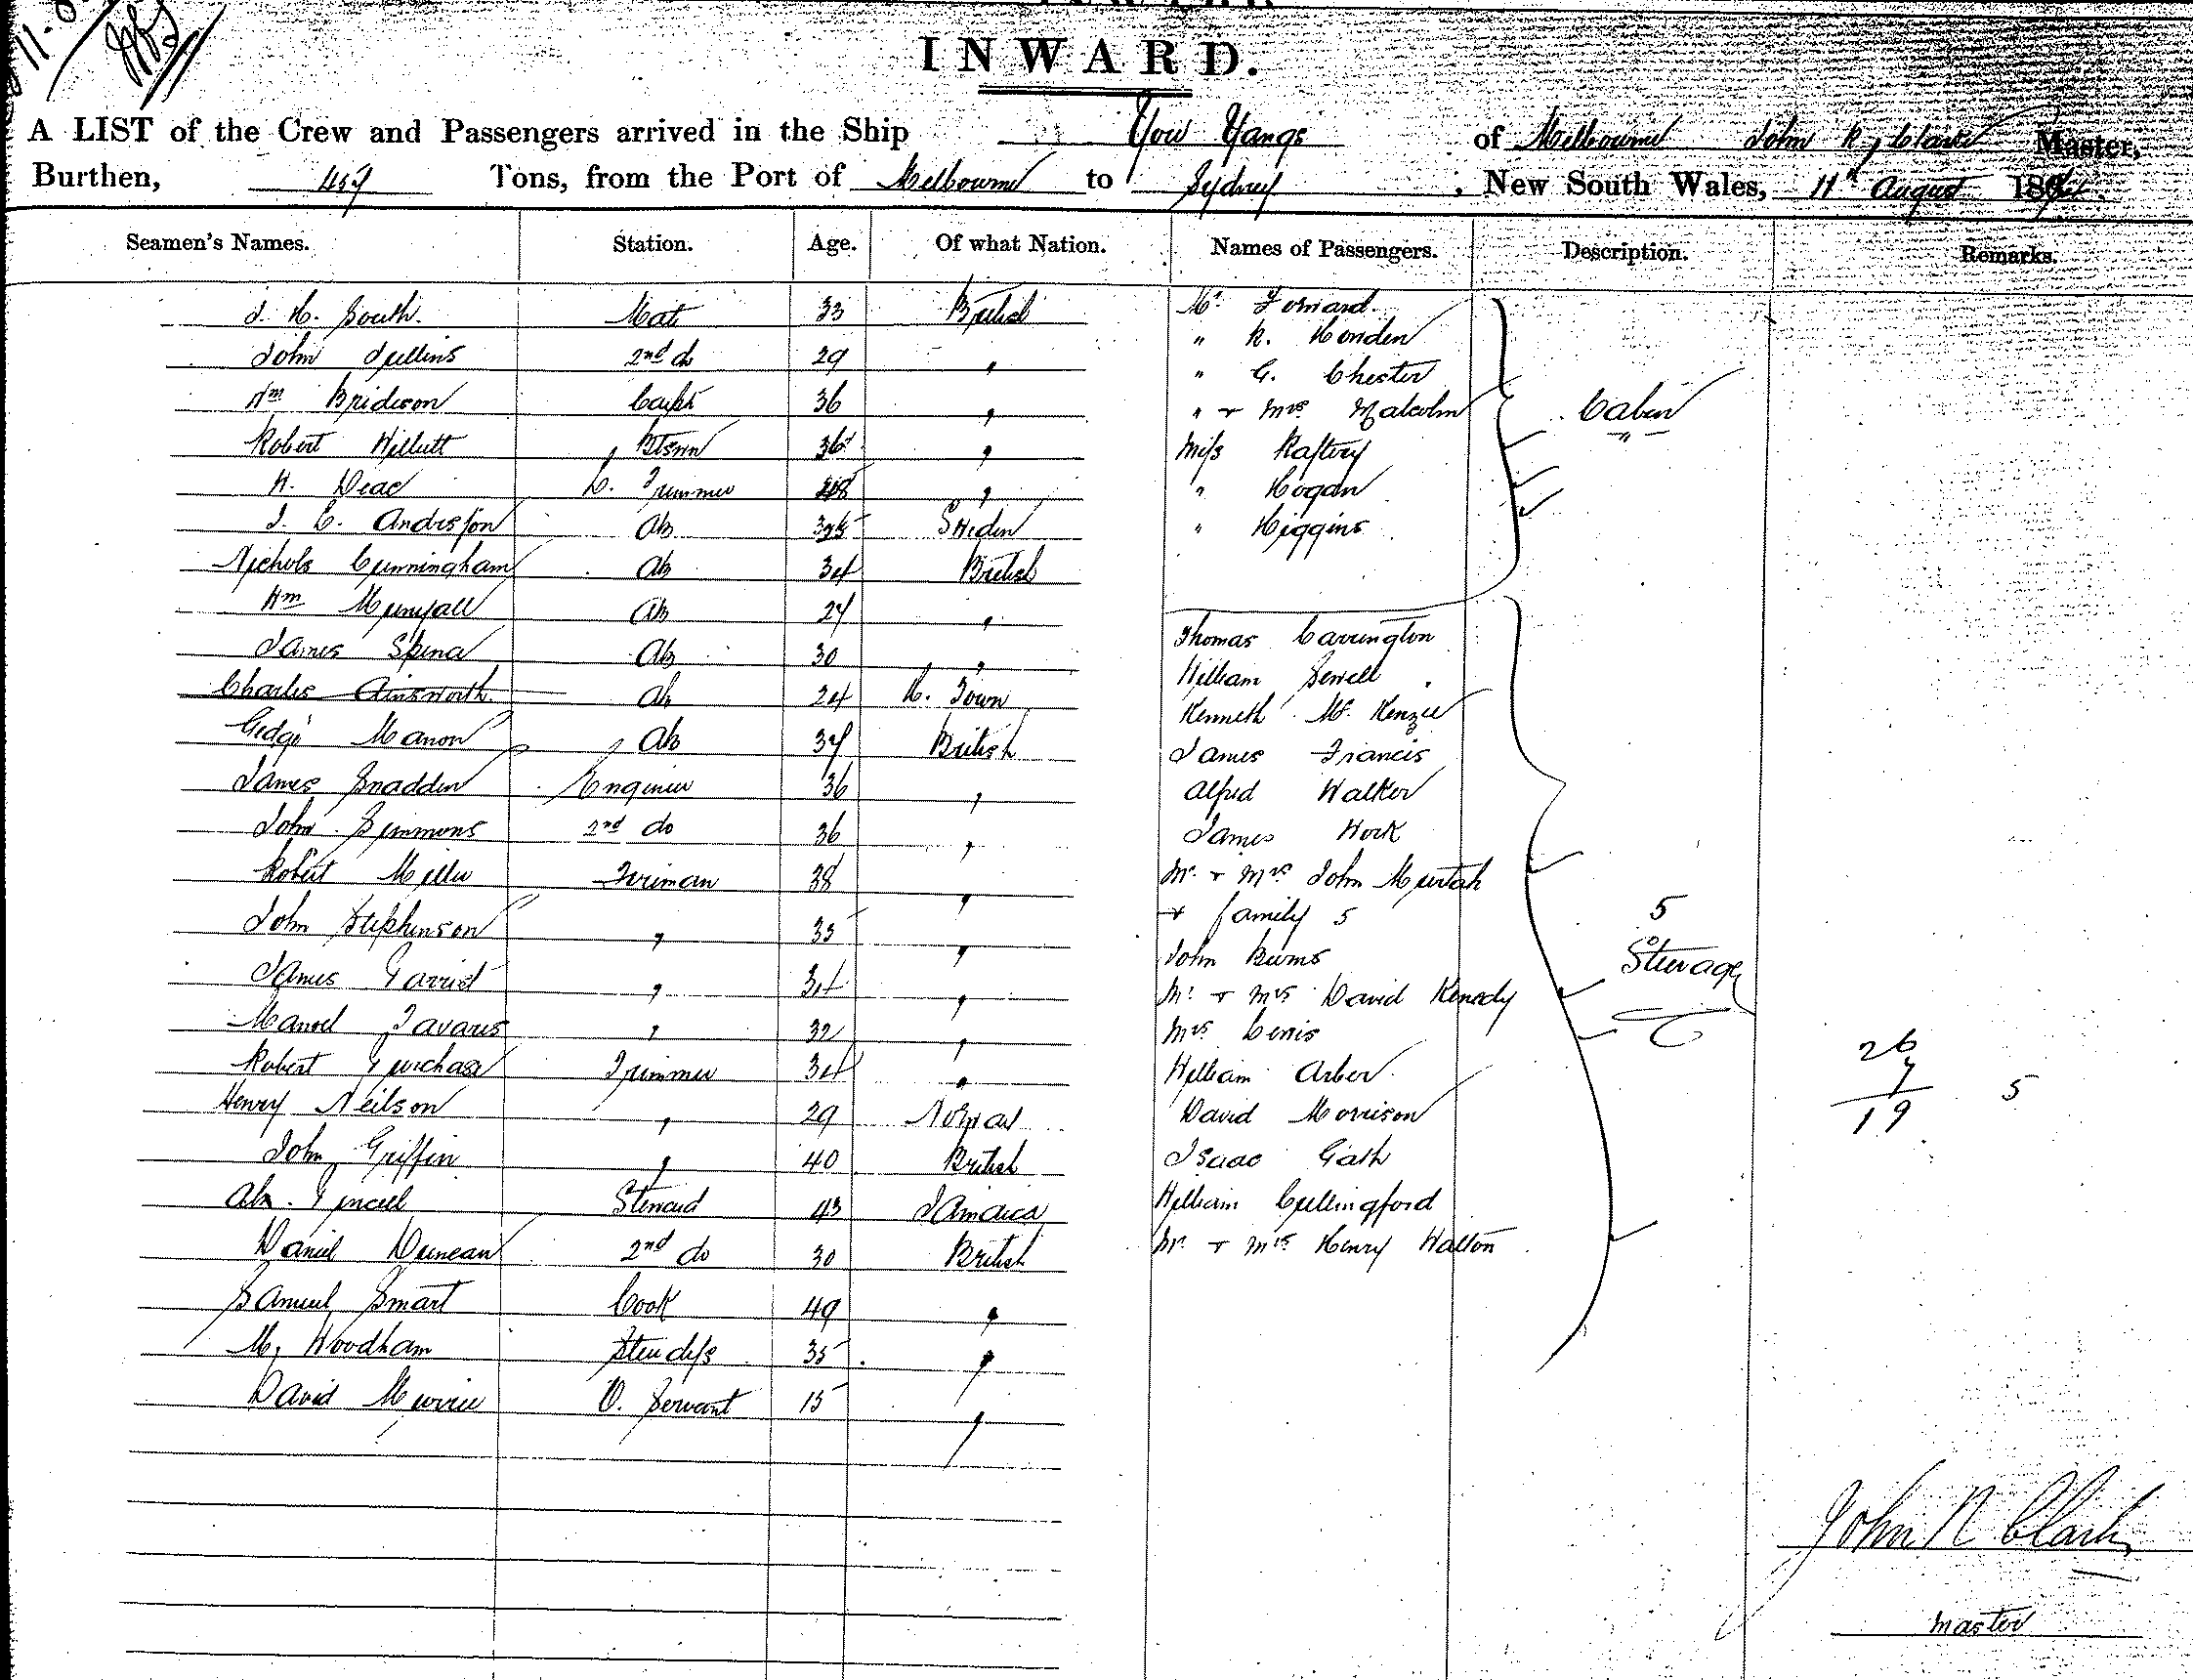 INWARD.
A LIST of the Crew and Passengers arrived in the Ship You Yangs of Melbourne John R Clark Master,
Burthen, 457 Tons, from the Port of Melbourne to Sydney, New South Wales, 11th August 189
Seamen's Names. Station. Age. Of what Nation. Names of Passengers. Description. Remarks.
J. H. South. Mate 33 British Mr Forward
John Jullins 2nd do 29 " " R. Honden
" G. Chester
Wm Bridson 36 " " + Mrs Malcolm Cabin
Robert Willutt 36 " Miss Raftery "
H. Deac Trimmer " " Hogan
J. C. Andersson Ab Sweden " Higgins
Nichols Cunningham Ab 34 British
Wm Ab 27 "
James Ab 30 " Thomas Carrington
Charles Ainsworth Ab 24 H. Town William Sewell
Manon Ab 37 British Kenneth Mc Kenzie
James Francis
James Snadden Engineer 36 " Alfred Walker
John Simmons 2nd do 36 " James Work
Robert Miller Fireman 38 " Mr + Mrs John Murtah
John Stephenson " 35 " + family 5 5
John Burns Steerage
James " 34 " Mr + Mrs David Kenedy
Manoel Tavares " 32 " Mrs
Robert Purchase Trimmer 34 " William Arber 26
7
Henry Neilson " 29 Norway David Morrison 19 5
John Griffin " 40 British Isaac Gath
Steward 43 Jamaica William Cullingford
Daniel Duncan 2nd do 30 British Mr + Mrs Henry Walton
Samuel Smart Cook 49 "
M. Woodham Stewdss 35 "
David Murrie O. Servant 15 "
John R Clark
Master